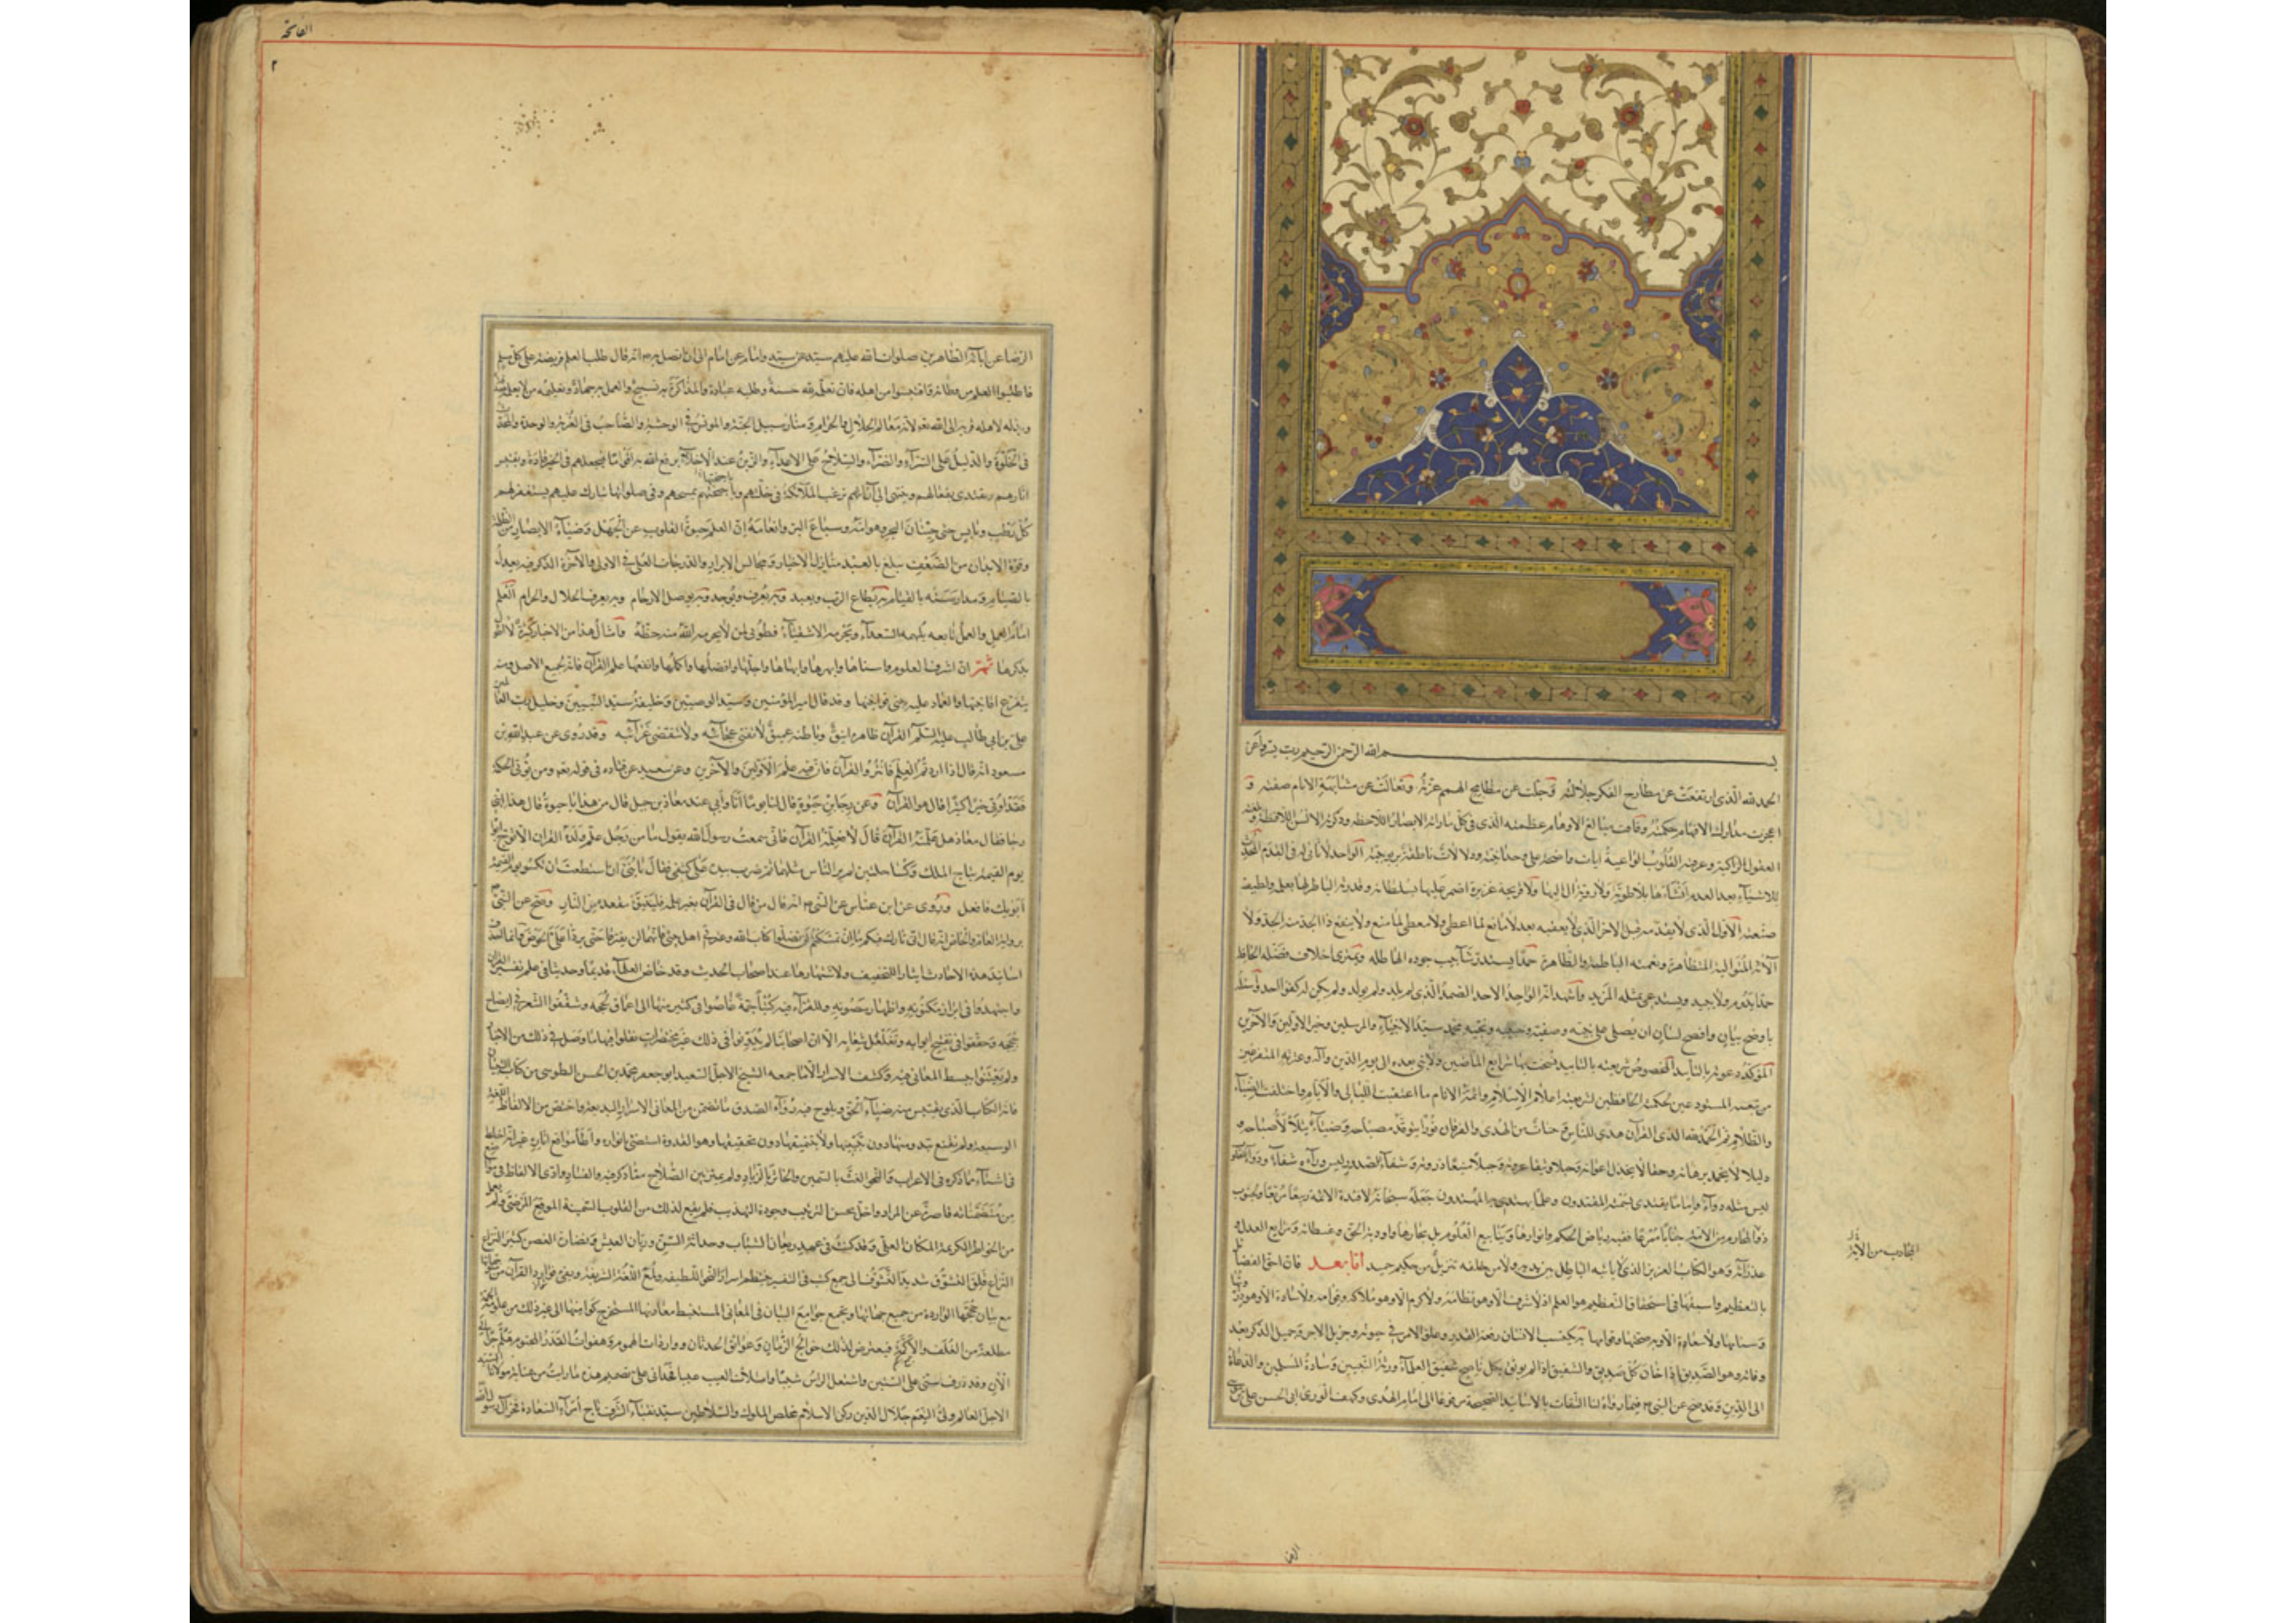 بسم الله الرحمن الرحيم رب يسر وأعن
الحمد لله الذى ارتفعت عن مطارح الفكر جلالته وجلت عن مطامح الهمم عزته وتعالت عن مشابهة الانام صفته و
اعجزت مدارك الافهام حكمته وفاقت مبالغ الاوهام عظمته الذى فى كل ما رأته الابصار اللاحظه وذكرته الالسن اللافظة وعته
العقول الزاكية وعرفه القلوب الواعية ايات واضحة على وحدانيته ودلالات ناطقة بربوبيته الواحد لا ثانى له فى القدم المحدث
للاشياء بعد العدم انشاءها بلا طوية ولا روية ال اليها ولا قريحة غريزة اضمر عليها بسلطانه وقدرته الباطن لها بعلمه ولطيف
صنعته الاول الذى لا يتقدمه قبل الاخر الذى لا يعقبه بعد لا مانع لما اعطى ولا معطى لما منع ولا ينفع ذا الجد منه الجد ولا
آلائه المتوالية المتظاهرة ونعمته الباطنة والظاهرة حمدا يستدر شآبيب جوده الهاطله ويمترى اخلاف فضله الحافل
حمدا يدوم ولا يبيد ويستدعى بمثله المزيد واشهد انه الواحد الاحد الصمد الذى لم يلد ولم يولد ولم يكن له كفوا احد
باوضح بيان وافصح لسان ان يصلى على نجيه وصفيه وحبيبه ونجيبه محمد سيد الانبياء والمرسلين وخير الاولين والآخرين
المؤكد دعوته بالتأييد المخصوص شريعته بالتأبيد فنسخت بها شرايع الماضين ولا نبى بعده الى يوم الدين وآله وعترته المتفرعين
من نبعته المستودعين لحكمته الحافظين لشريعته اعلام الاسلام وائمة الانام ما اعتقبت الليالى والايام واختلف الضياء
والظلام ثم الحمد لله الذى القرآن هدى للناس وبينات من الهدى والفرقان نورا يتوقد مصباحه وضياء يتلألأ صباحه و
دليلا لا يخمد برهانه وحقا لا يخذل اعوانه وحبلا وثيقا عروته وجبلا منيعا ذروته وشفاء للصدور ليس وراءه شفاء ودواء للقلوب
ليس مثله دواء واماما يقتدى بسمته المقتدون وعلما يهتدى به المهتدون جعله سبحانه لافئدة الائمه ربيعا مربعا ولجنوب
ذوى المخارم من الامة جنابا ممرعا ففيه رياض الحكم وانوارها وينابيع العلوم بل بحارها واودية الحق وغيطانه وشرايع العدل و
غدرانه وهو الكتاب العزيز الذى لا يأتيه الباطل من بين يديه ولا من خلفه تنزيل من حكيم حميد اما بعد فان احق الفضايل
بالتعظيم واسبقها فى استحقاق التقديم هو العلم اذ لا شرف الا وهو نظامه ولا كرم الا وهو ملاكه وقوامه ولا سيادة الا وهو ذروتها
وسنامها ولا سعادة الا وبه صحتها وقوامها به يكتسب الانسان رفعة القدر وعلو الامر فى حيوته وجزيل الاجر وجميل الذكر بعد
وفاته وهو الصديق اذا خان كل صديق والشفيق اذا لم يوثق بكل ناصح شفيق العلماء ورثة النبيين وسادة المسلمين والدعاة
الى الدين وقد صح عن النبى فيما رواه لنا الثقات بالاسانيد الصحيحة مرفوعا الى امام الهدى وكهف الورى ابى الحسن على بن موسى
الفاتحة
٢
الرضا عن آبائه الطاهرين صلوات الله عليهم سيد عن سيد وامام عن امام الى ان اتصل به انه قال طلب العلم فريضة على كل مسلم
فاطلبوا العلم من مظانه واقتبسوا من اهله فان تعلمه لله حسنة وطلبه عبادة والمذاكرة به تسبيح والعمل به جهاد وتعليمه من لا يعلمه صدقة
وبذله لاهله قربة الى الله تعالى لانه معالم الحلال والحرام ومنار سبيل الجنة والمونس فى الوحشة والصاحب فى الغربة والوحدة والمحدث
فى الخلوة والدليل على السراء والضراء والسلاح على الاعداء والزين عند الاخلاء يرفع الله به اقواما فيجعلهم فى الخير قادة ويقتبس
آثارهم ويهتدى بفعالهم وينتهى الى آرائهم ترغب الملائكة فى خلتهم وباجنحتهم تمسهم وفى صلواتها تبارك عليهم يستغفر لهم
كل رطب ويابس حتى حيتان البحر وهوامه وسباع البر وانعامه ان العلم حيوة القلوب من الجهل وضياء الابصار من الظلمة
وقوة الابدان من الضعف يبلغ بالعبد منازل الاخيار ومجالس الابرار والدرجات العلى فى الاولى والآخرة الذكر فيه يعدل
بالصيام ومدارسته بالقيام به يطاع الرب ويعبد وبه يعرف ويوحد وبه يوصل الارحام وبه يعرف الحلال والحرام العلم
امام العمل والعمل تابعه يلهمه السعداء ويحرمه الاشقياء فطوبى لمن لا يحرمه الله منه حظه وامثال هذا من الاخبار كثيرة
بذكرها ثم ان اشرف العلوم واسناها وابهرها وابهاها واجلها وافضلها واكملها وانفعها علم القرآن فانه لجميع الاصل ومنه
يتفرع افانينها والعماد عليه يبنى قوانينها وقد قال امير المؤمنين وسيد الوصيين وخليفة سيد النبيين وخليل رب العالمين
على بن ابى طالب عليه السلم القرآن ظاهره انيق وباطنه عميق لا تفنى عجائبه ولا تنقضى غرائبه وقد روى عن عبد الله بن
مسعود انه قال اذا اردتم العلم فاثروا القرآن فان فيه علم الاولين والآخرين وعن سعيد عن قتاده فى قوله تعالى ومن يؤتى الحكمة
فقد اوتى خيرا كثيرا قال هو القرآن وعن رجاء بن حيوة قال كنا يوما انا وابى عند معاذ بن جبل قال من هذا يا حيوة قال هذا ابنى
رجا فقال معاذ هل علمته القرآن قال لا فعلمه القرآن فانى سمعت رسول الله يقول ما من رجل علم ولده القرآن الا توج ابواه
يوم القيمة بتاج الملك وكسيا حلتين لم ير الناس مثلهما ثم ضرب بيده على كتفى فقال يا بنى ان استطعت ان تكسو يوم القيمة
ابويك فافعل وروى عن ابن عباس عن النبى انه قال من قال فى القرآن بغير علم فليتبوأ مقعده من النار وصح عن النبى
برواية العام والخاص انه قال انى تارك فيكم ما ان تمسكتم لن تضلوا كتاب الله وعترتى اهل بيتى فانهما لن يفترقا حتى يردا على الحوض وانما احذف
اسانيد هذه الاحاديث ايثارا للتخفيف ولاشتهارها عند اصحاب الحديث وقد خاض العلماء قديما وحديثا فى علم تفسير القرآن
واجتهدوا فى ابراز مكنونه واظهار مصونه والفوا فيه كتبا جمة غاصوا فى كثير منها الى اعماق لججه وشققوا الشعر فى ايضاح
حججه وحققوا فى تنقيح ابوابه وتغلغل شعابه الا ان اصحابنا لم يدونوا فى ذلك غير مختصرات نقلوا فيها ما وصل فى ذلك من الاخبار
ولم يعتنوا ببسط المعانى فيه وكشف الاسرار الا ما جمعه الشيخ الاجل السعيد ابو جعفر محمد بن الحسن الطوسى من كتاب التبيان
فانه الكتاب الذى يقتبس منه ضياء الحق ويلوح فيه رواء الصدق ما تضمن من المعانى الاسرار البديعة واختص من الالفاظ اللغة
الوسيعة ولم يقنع بتدوينها دون تبيينها ولا بتنميقها دون تحقيقها وهو القدوة استضئ بانواره واطأ مواقع آثاره غير انه خلط
فى اشياء مما ذكره فى الاعراب والنحو الغث بالسمين والخاثر بالزباد ولم يميز بين الصلاح مما ذكر فيه والفساد وادى الالفاظ فى مواضع
من متضمناته قاصرة عن المراد واخل بحسن الترتيب وجودة التهذيب فلم يقع لذلك من القلوب السليمة الموقع المرضى ولم يعل
من الخواطر الكريمة المكان العلى وقد كنت فى عهد ريعان الشباب وحداثة السن وريان العيش ونضارة الغصن كثير النزاع
قلق التشوق شديد التشوف الى جمع كتب فى التفسير ينتظم اسرار النحو اللطيفه ولمع اللغة الشريفة ويفى موارد القرآن من
مع بيان حججها الواردة من جميع جهاتها ويجمع جوامع البيان فى المعانى المستنبط معادنها المستخرج كوامنها الى غير ذلك من علومه الجمة
مطلعة من الغلف والاكمة فيعترض لذلك حوائج الزمان وعوائق الحدثان وواردات الهموم وهفوات القدر المحتوم وهلم جرا
الآن وقد ذرف سنى على الستين واشتعل الراس شيبا وامتلأت العيبة عيبا فحدانى على تصميم هذه ما رايت من عناية مولانا السيد
الاجل العالم ولى النعم جلال الدين ركن الاسلام مخلص الملوك والسلاطين سيد نقباء الشرف تاج امراء السادة فخر آل رسول الله